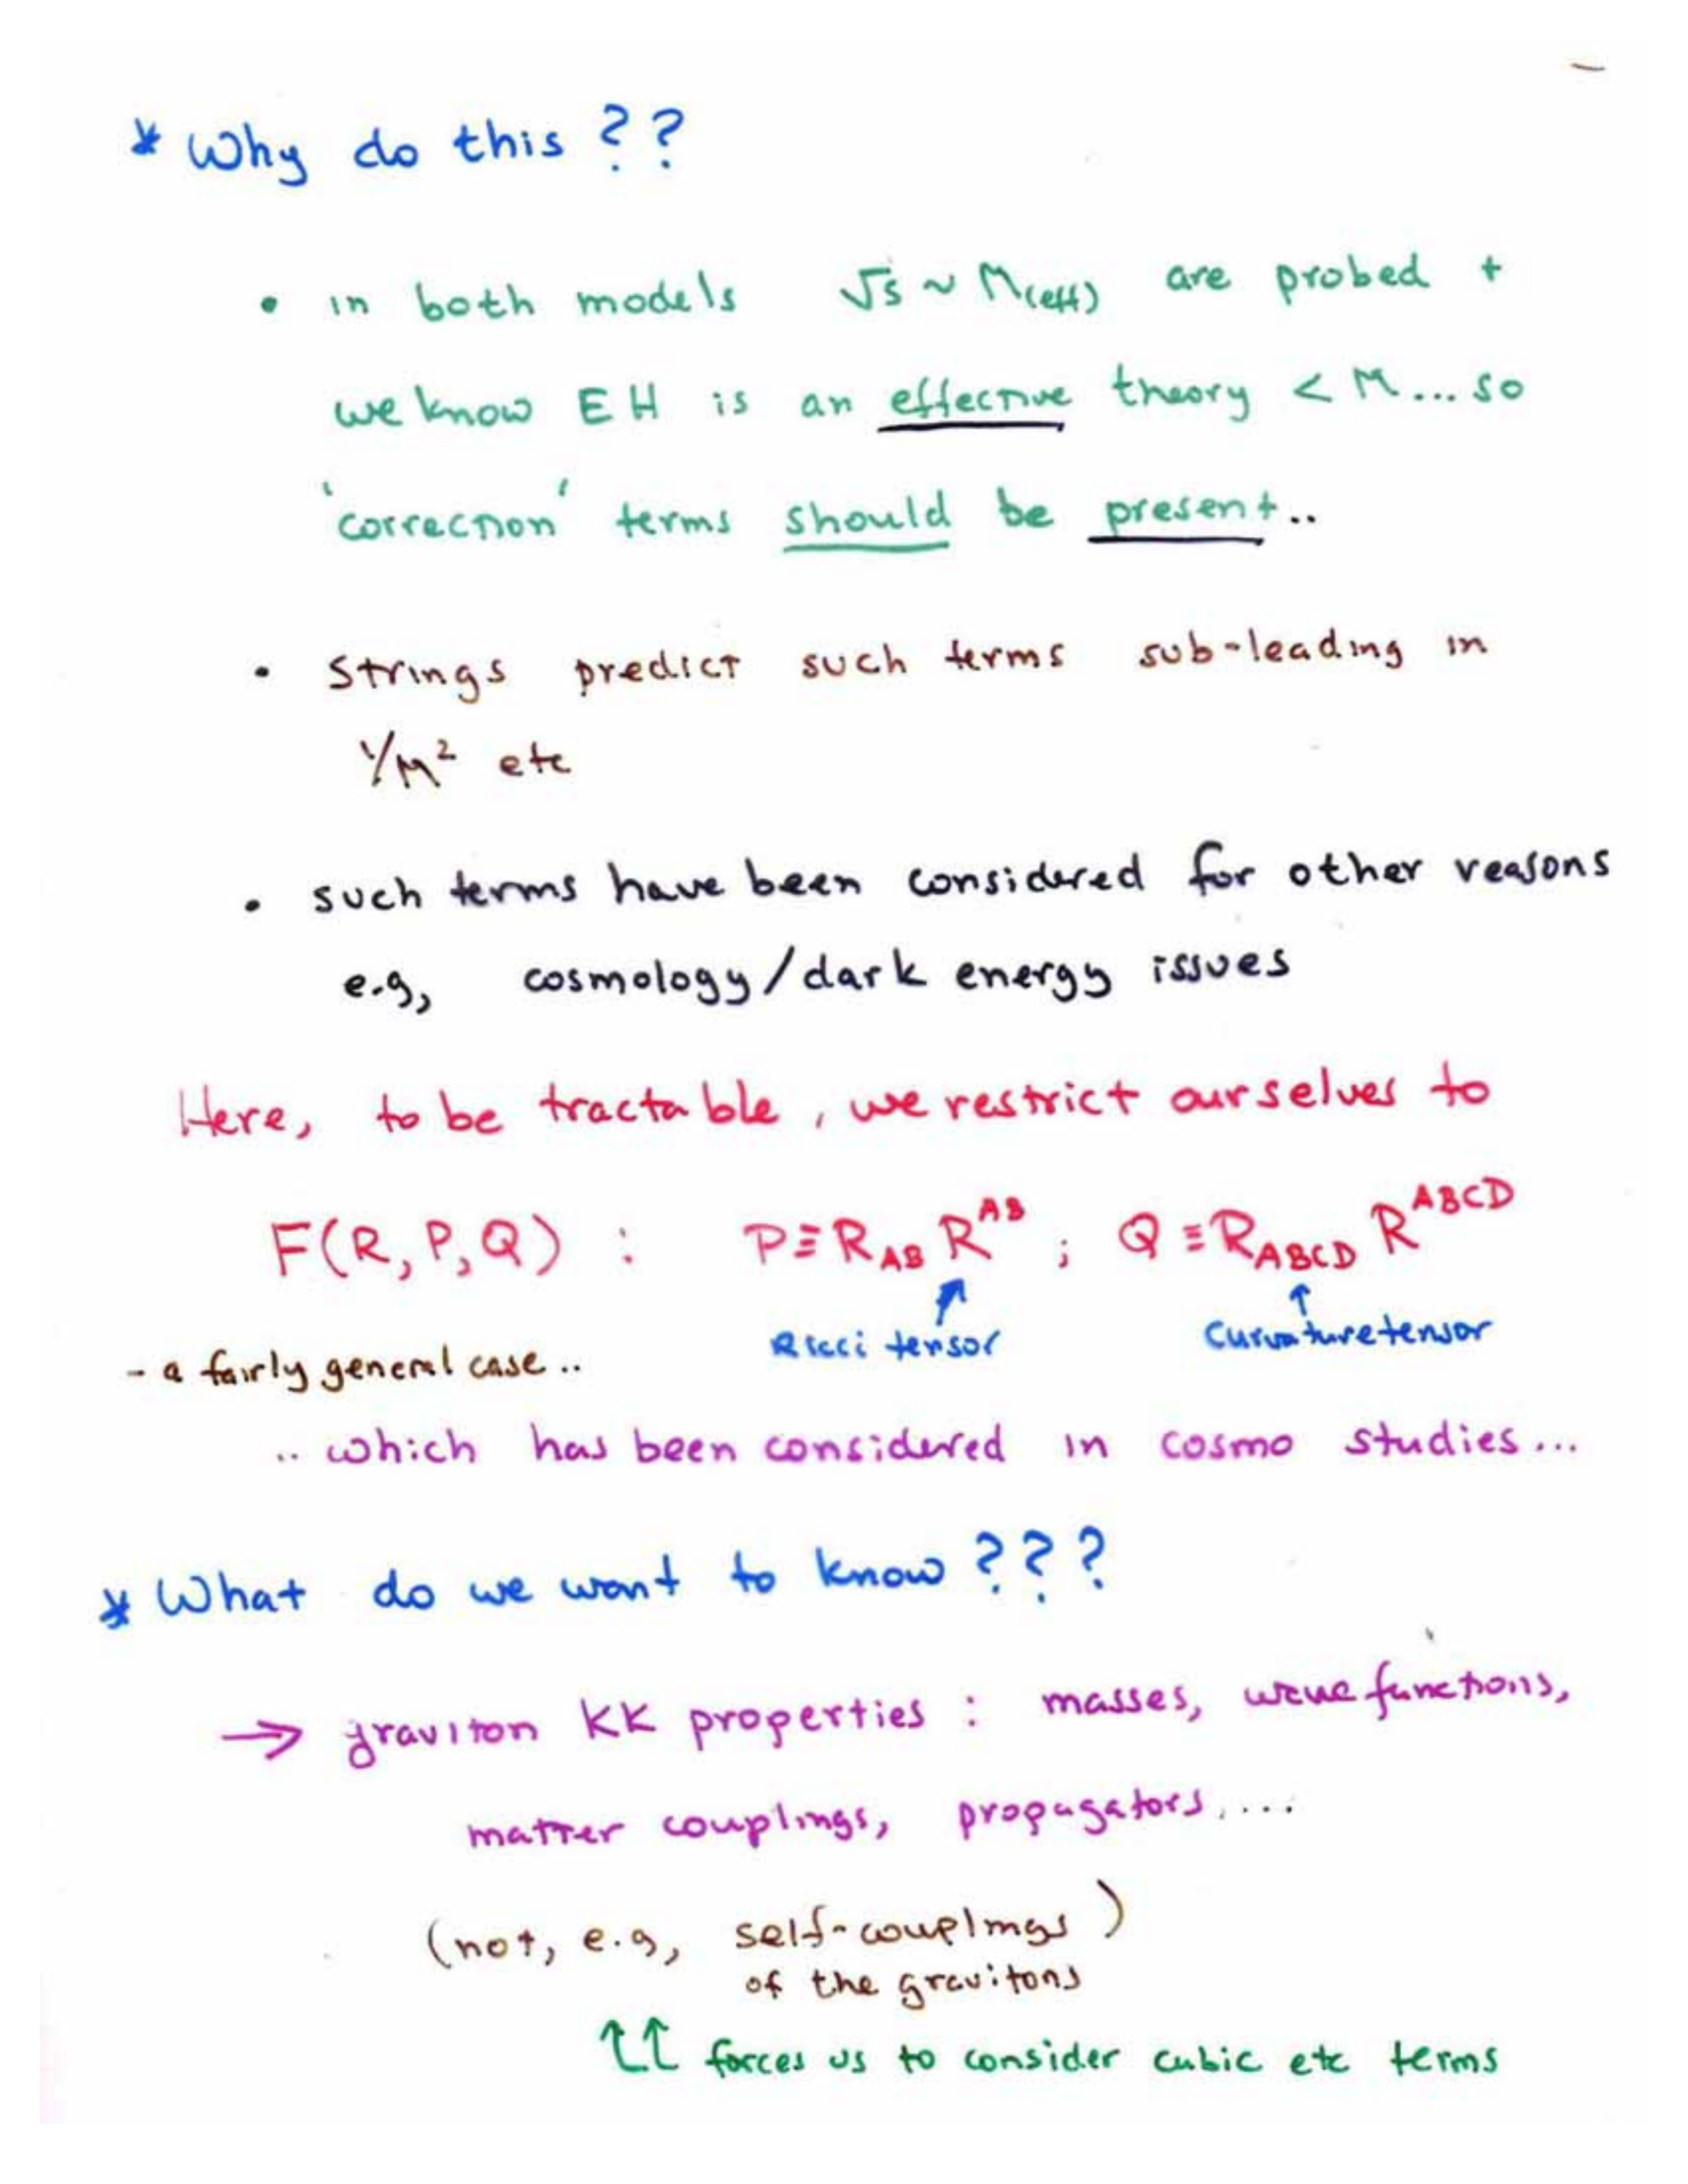 * Why do this ??
• in both models √s ~ M(eff) are probed +
we know EH is an effective theory < M... so
'correction' terms should be present..
• Strings predict such terms sub-leading in
1/M² etc
• such terms have been considered for other reasons
e.g, cosmology/dark energy issues
Here, to be tractable, we restrict ourselves to
F(R,P,Q) : P≡R_AB R^AB ; Q≡R_ABCD R^ABCD
↗ ↑
Ricci tensor Curvature tensor
- a fairly general case..
.. which has been considered in cosmo studies...
* What do we want to know ???
→ graviton KK properties : masses, wave functions,
matter couplings, propagators,....
(not, e.g, self-couplings)
of the gravitons
↑↑ forces us to consider cubic etc terms